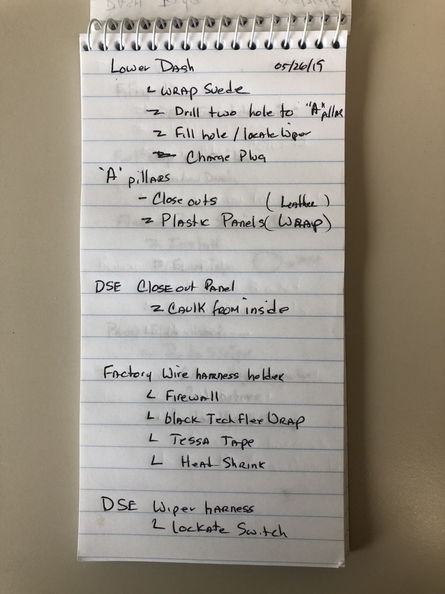 Lower Dash 05/26/19
WRAP Suede
Drill two hole to "A" pillar
Fill hole / locate wiper
Change Plug
"A" pillars
- Close outs (Leather)
Plastic Panels (WRAP)
DSE Close out Panel
CAULK from inside
Factory Wire harness holder
Firewall
black Techflex WRAP
Tessa Tape
Heat Shrink
DSE Wiper harness
lockate Switch